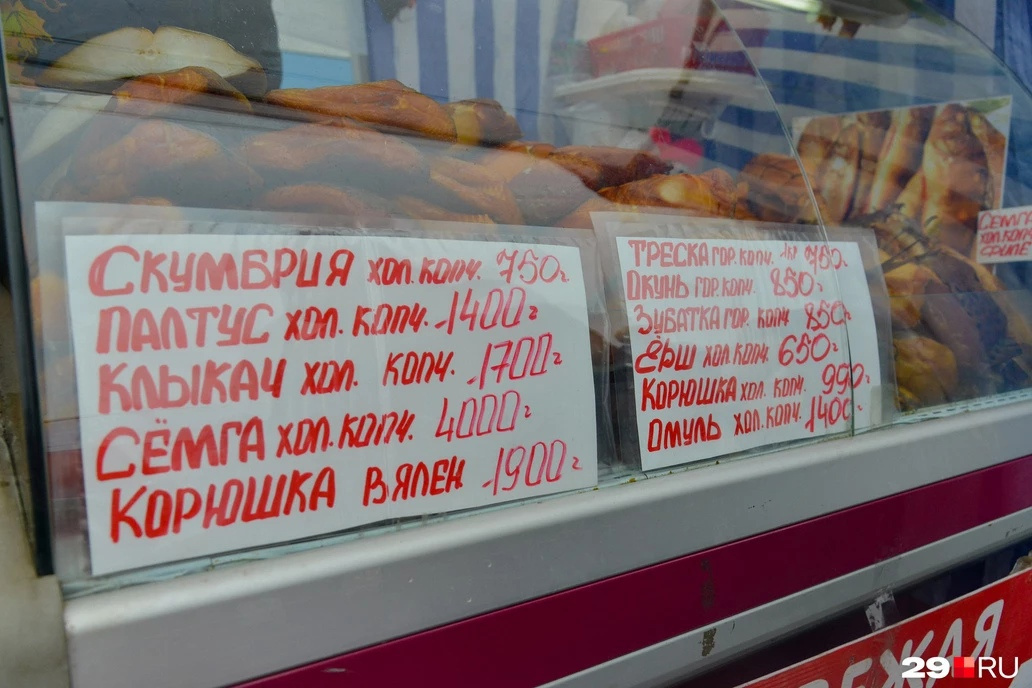 СКУМБРИЯ ХОЛ.КОПЧ. 750г
ПАЛТУС ХОЛ. КОПЧ. -1400г
КЛЫКАЧ ХОЛ. КОПЧ. -1700г
СЁМГА ХОЛ.КОПЧ. 4000г
КОРЮШКА ВЯЛЕН -1900г
ТРЕСКА ГОР.КОПЧ. 1к 750г
ОКУНЬ ГОР.КОПЧ. 850г
ЗУБАТКА ГОР. КОПЧ 850г
ЁРШ ХОЛ.КОПЧ. 650г
КОРЮШКА ХОЛ. КОПЧ. 990г
ОМУЛЬ ХОЛ.КОПЧ. 1400г
СЁМГА
ХОЛ.КОПЧ
ФИЛЕ
ЕЖАЯ
29.RU